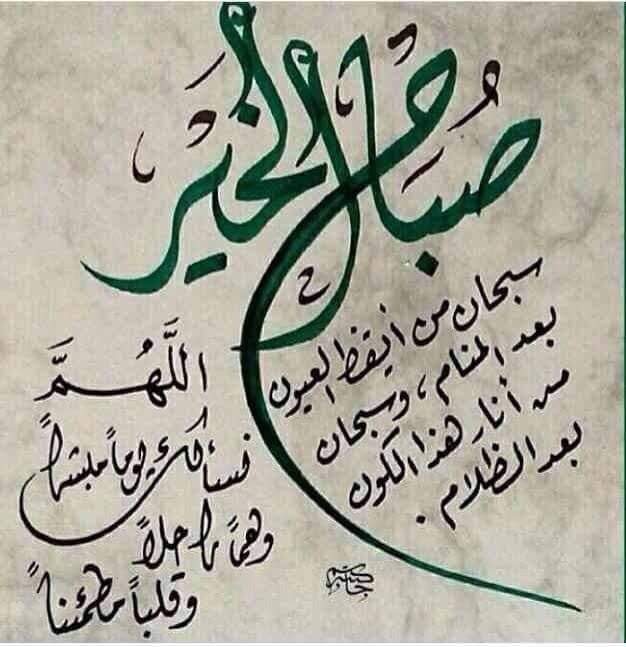 صَبَاحُ الْخَيْر
سبحان من أيقظ العيون
بعد المنام، وسبحان
من أنار هذا الكون
بعد الظلام.
اللَّهُمَّ
نسألك يوماً مبشراً
وهماً راحلاً
وقلباً مطمئناً